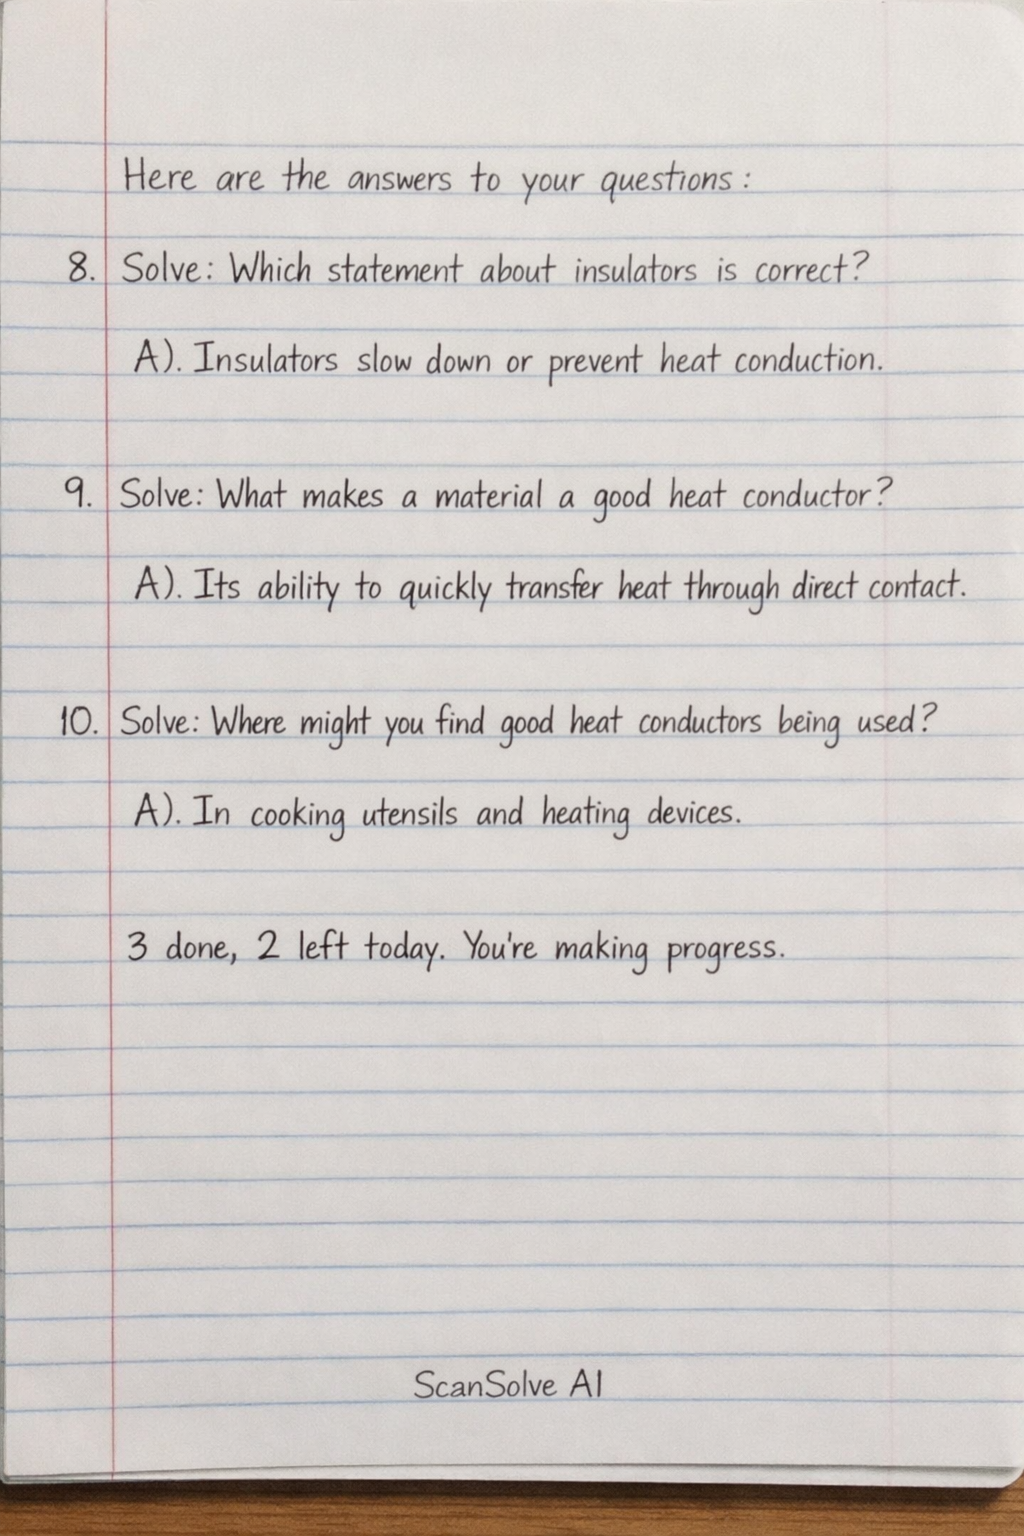 Here are the answers to your questions:
8. Solve: Which statement about insulators is correct?
A). Insulators slow down or prevent heat conduction.
9. Solve: What makes a material a good heat conductor?
A). Its ability to quickly transfer heat through direct contact.
10. Solve: Where might you find good heat conductors being used?
A). In cooking utensils and heating devices.
3 done, 2 left today. You're making progress.
ScanSolve AI